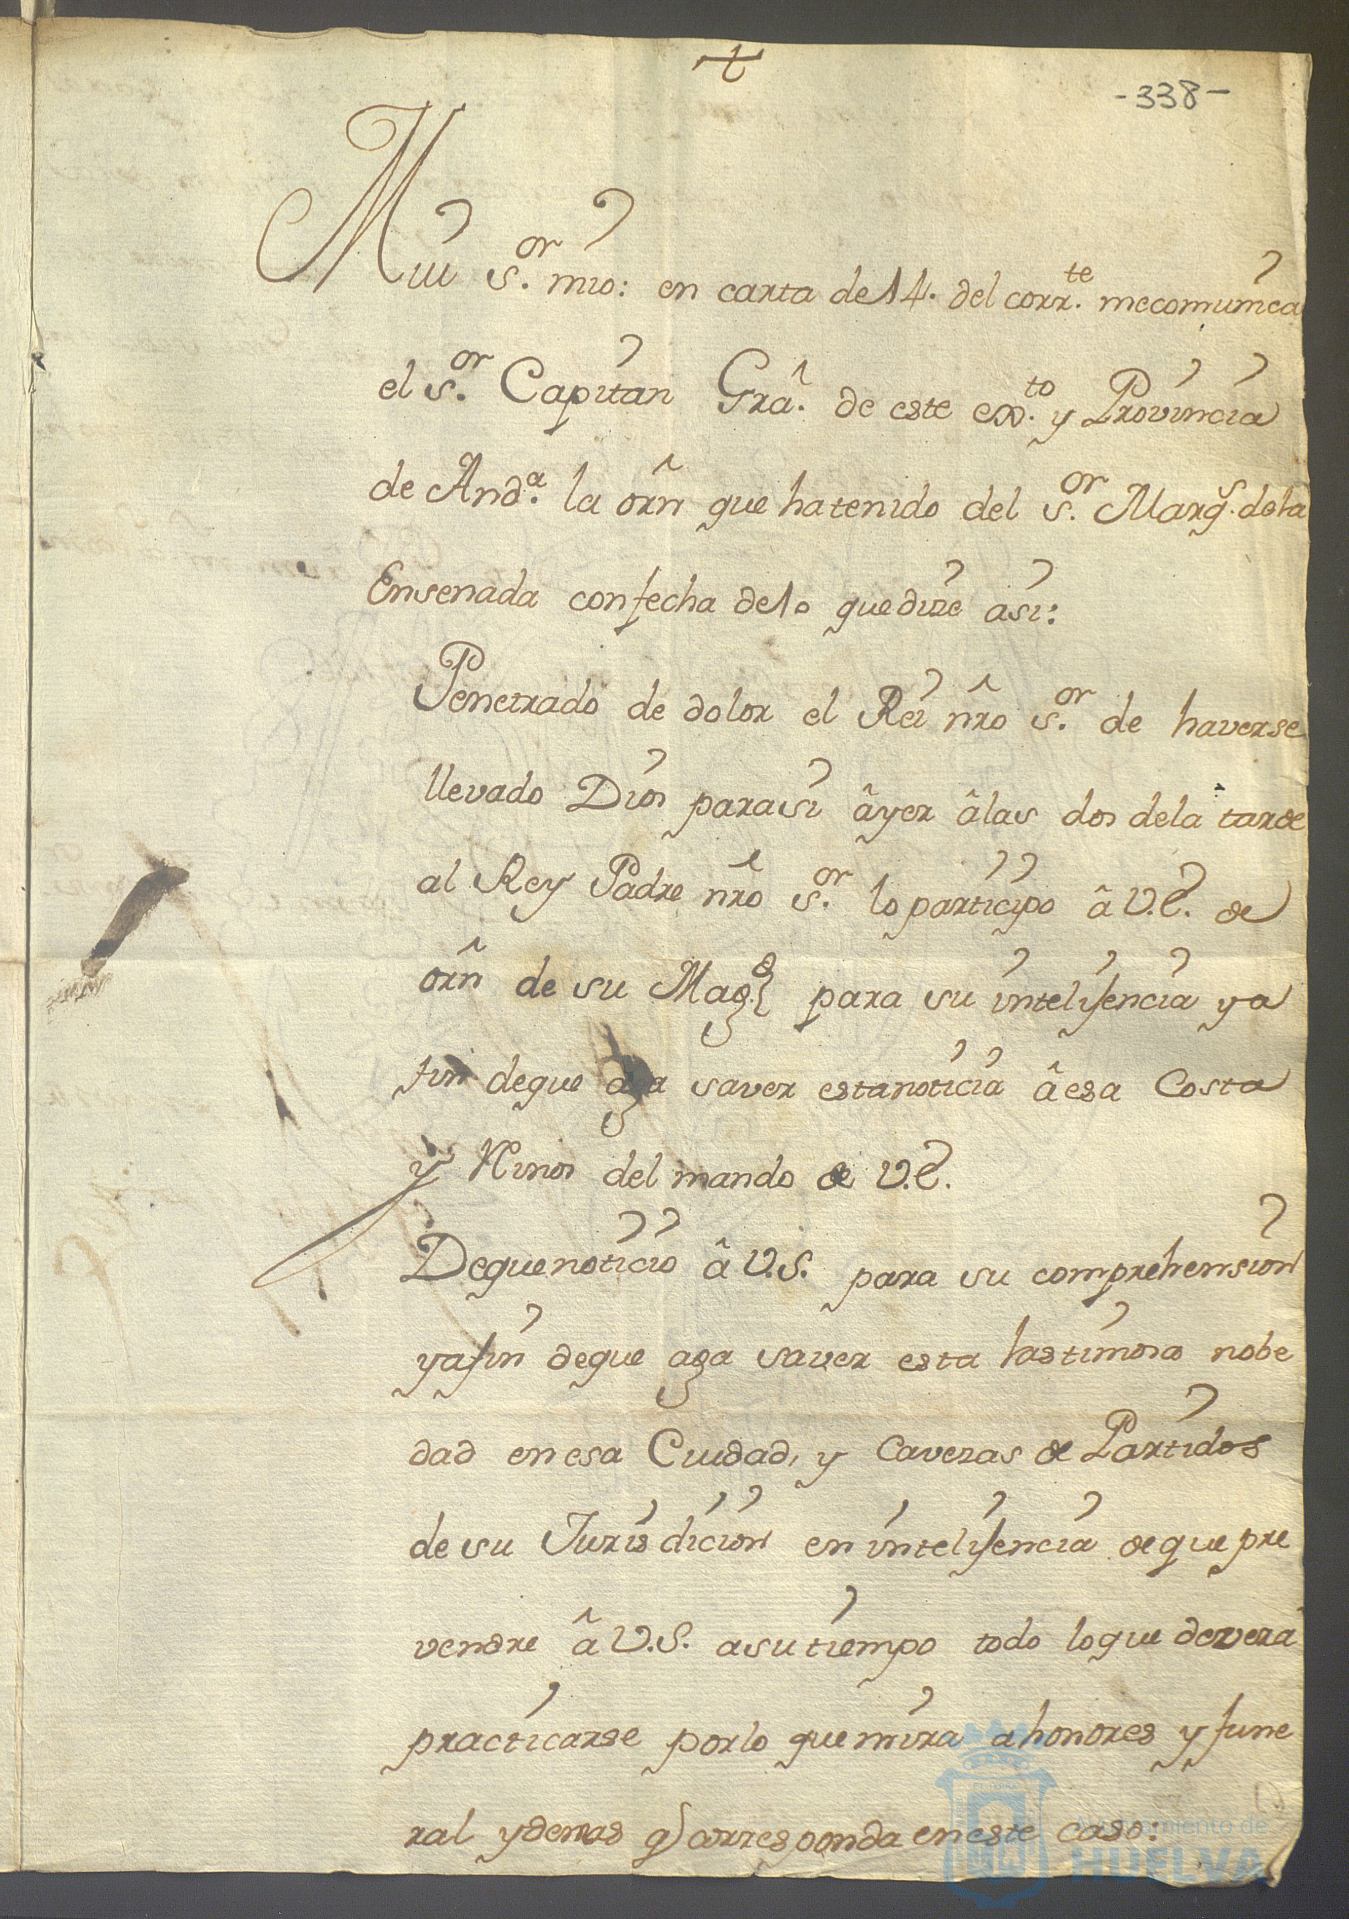 +
-338-
Mui S.or mio: en carta de 14. del corr.te me comunica
el S.or Capitan Grãl. de este Ex.to y Provincia
de And.a la orñ que ha tenido del S.or Marq.s de la
Ensenada con fecha de 10 que dize asi:
Penetrado de dolor el Rei nr̃o S.or de haverse
llevado Dios para si âyer âlas dos dela tarde
al Rey Padre nr̃o S.or lo participo â V.E. de
orñ de su Mag.d para su intelijencia y a
fin de que aga saver esta noticia â esa Costa
y Reinos del mando de V.E.
De que noticio â V.S. para su comprehension
y a fin de que aga saver esta lastimosa nobe
dad en esa Ciudad, y Cavezas de Partidos
de su Jurisdicion en intelijencia de que pre
vendre â V.S. a su tiempo todo lo que devera
practicarse por lo que mira a honores y fune
ral y demas q corresponda en este caso:
Ayuntamiento de
HUELVA